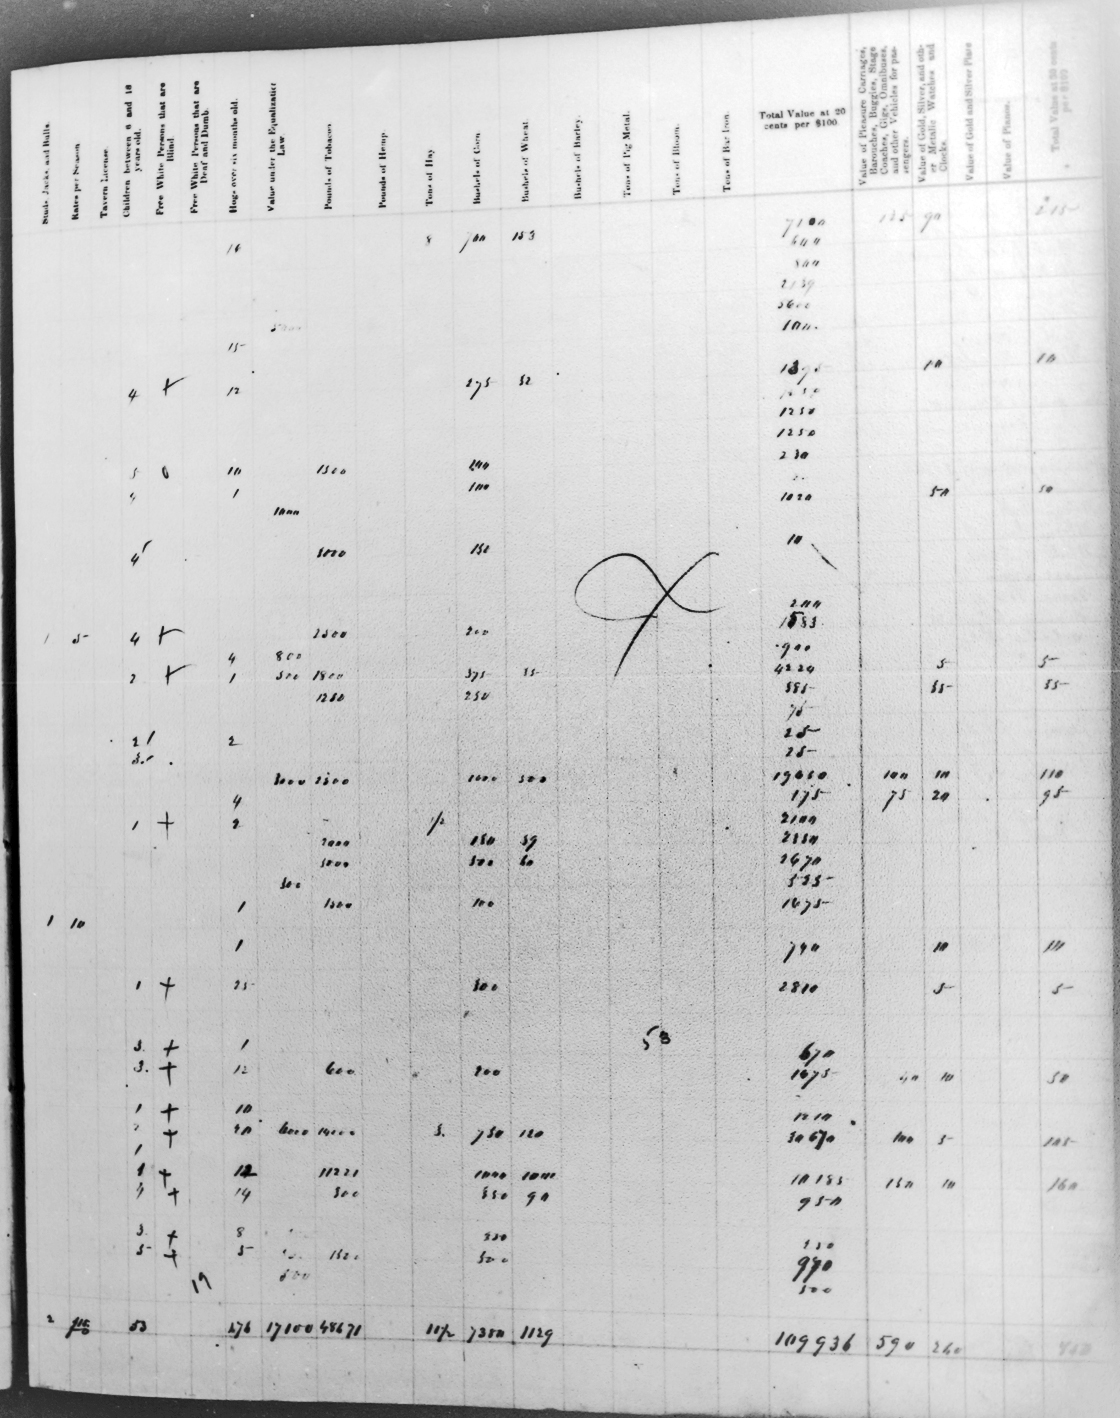 Studs, Jacks, and Bulls.
Rates per Season
Tavern License.
Children between 6 and 18 years old.
Free White Persons that are Blind.
Free White Persons that are Deaf and Dumb.
Hogs over six months old.
Value under the Equalization Law.
Pounds of Tobacco
Pounds of Hemp
Tons of Hay
Bushels of Corn
Bushels of Wheat.
Bushels of Barley.
Tons of Pig Metal.
Tons of Bloom.
Tons of Bar Iron.
Total Value at 20 cents per $100.
Value of Pleasure Carriages, Barouches, Buggies, Stage Coaches, Gigs, Omnibuses, and other Vehicles for passengers.
Value of Gold, Silver, and other Metalic Watches and Clocks.
Value of Gold and Silver Plate
Value of Pianos.
Total Value at 30 cents per $100
7100 125 90 215
16 8 700 153
800
5600
15
1395 10 10
4 + 12 275 52
1250
1250
230
5 0 10 1500 200
4 1 100 1020 50 50
1000
4 3000 150 10
200
1 5 4 + 2500 200 1585
4 800 900
2 + 1 500 1800 375 55 4220 5 5
1250 250 585 55 55
75
2 2 25
25
3000 2500 1000 500 19650 100 10 110
4 175 75 20 95
1 + 2 1/2 2100
2000 150 59 2550
3000 500 60 2670
500 535
1 1500 100 1675
1 10
1 740 10 10
1 + 25 500 2810 5 5
53
3 + 1 670
3 + 12 600 200 1675 40 10 50
1 + 10 1210
+ 20 6000 14000 3 750 120 30670 100 5 105
1
1 + 12 11221 1000 1000 10185 150 10 160
4 + 14 500 550 90 950
3 + 8
5 + 5 1500 500 970
19 500 500
2 53 276 17100 48671 11 1/2 7380 1129 109936 590 260